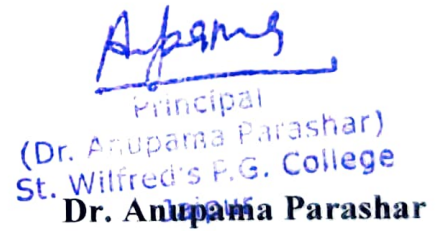 Anupama
Principal
(Dr. Anupama Parashar)
St. Wilfred's P.G. College
Jaipur
Dr. Anupama Parashar